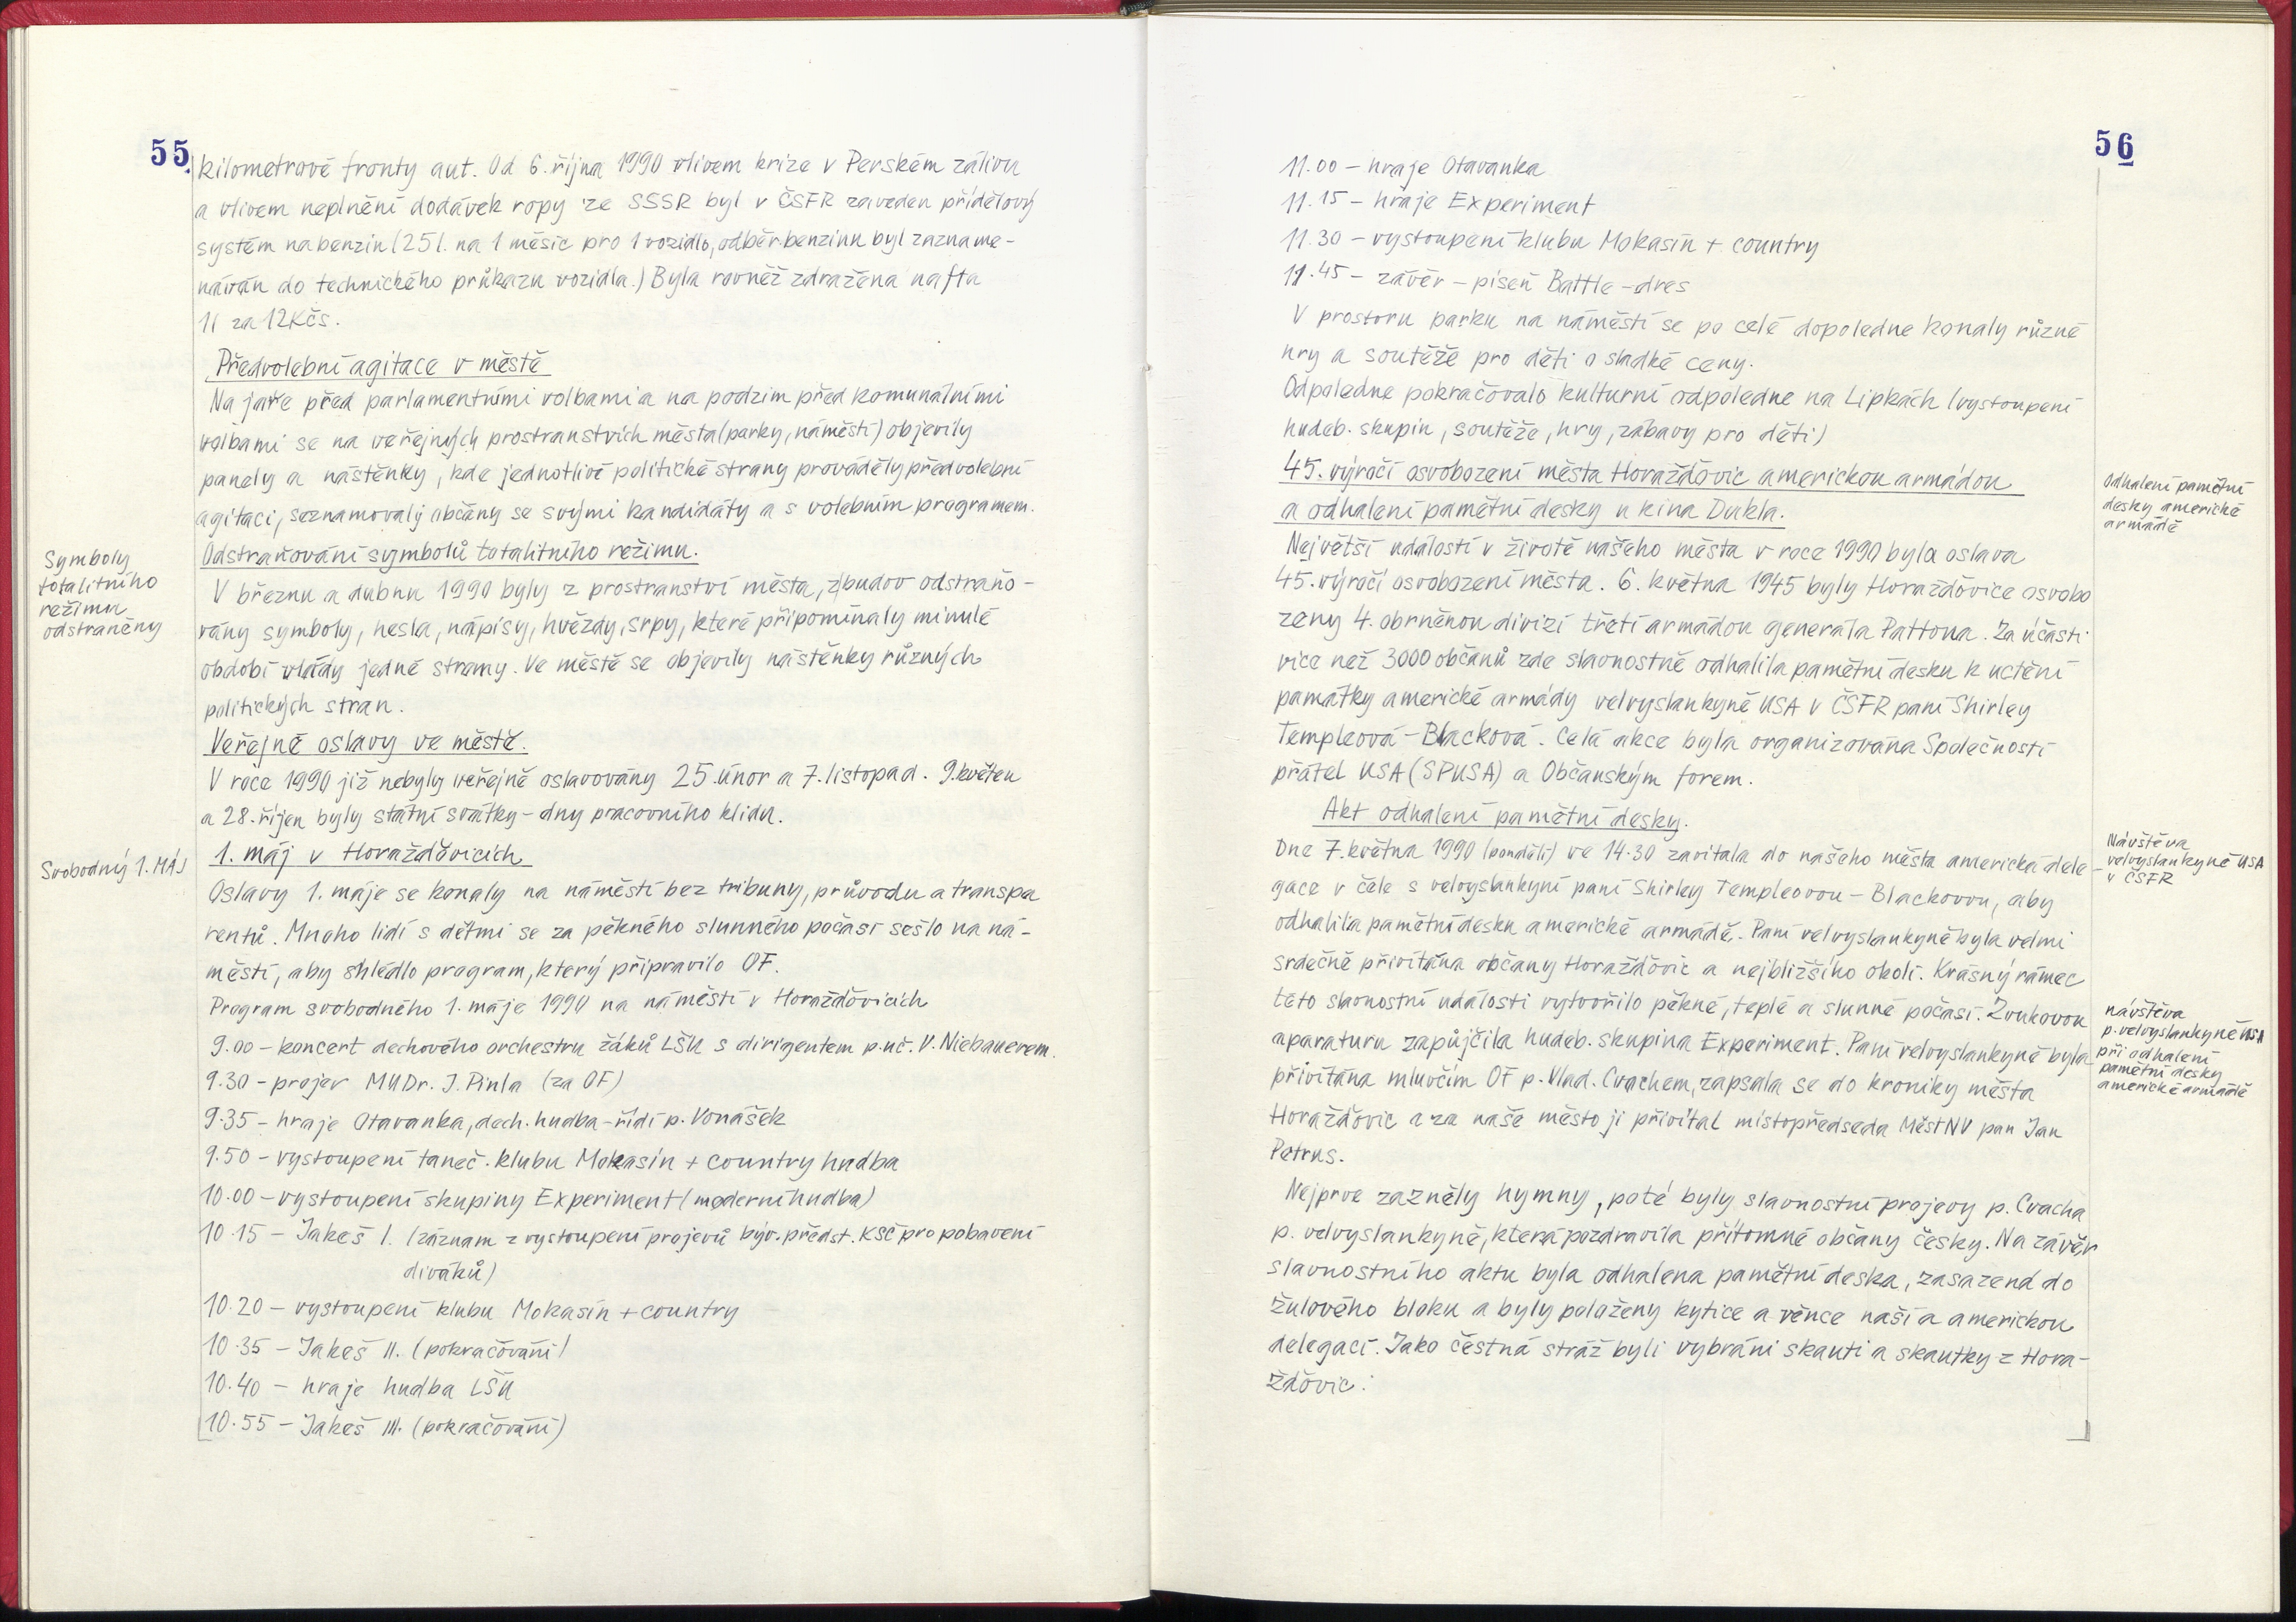 55
kilometrové fronty aut. Od 6. října 1990 vlivem krize v Perském zálivu
a vlivem neplnění dodávek ropy ze SSSR byl v ČSFR zaveden přídělový
systém na benzin (25 l. na 1 měsíc pro 1 vozidlo, odběr benzinu byl zazname-
náván do technického průkazu vozidla.) Byla rovněž zdražena nafta
1l za 12Kčs.
Předvolební agitace v městě
Na jaře před parlamentními volbami a na podzim před komunálními
volbami se na veřejných prostranstvích města (parky, náměstí) objevily
panely a nástěnky, kde jednotlivé politické strany prováděly předvolební
agitaci, seznamovaly občany se svými kandidáty a s volebním programem.
Odstraňování symbolů totalitního režimu.
Symboly
totalitního
režimu
odstraněny
V březnu a dubnu 1990 byly z prostranství města, z budov odstraňo-
vány symboly, hesla, nápisy, hvězdy, srpy, které připomínaly minulé
období vlády jedné strany. Ve městě se objevily nástěnky různých
politických stran.
Veřejné oslavy ve městě.
V roce 1990 již nebyly veřejně oslavovány 25. únor a 7. listopad. 9. květen
a 28. říjen byly státní svátky - dny pracovního klidu.
Svobodný 1. MÁJ
1. máj v Horažďovicích
Oslavy 1. máje se konaly na náměstí bez tribuny, průvodu a transpa
rentů. Mnoho lidí s dětmi se za pěkného slunného počasí sešlo na ná-
městí, aby shlédlo program, který připravilo OF.
Program svobodného 1. máje 1990 na náměstí v Horažďovicích
9.00 - koncert dechového orchestru žáků LŠU s dirigentem p.uč. V. Niebauerem.
9.30 - projev MUDr. J. Pinla (za OF)
9.35 - hraje Otavanka, dech. hudba - řídí p. Vonášek
9.50 - vystoupení taneč. klubu Mokasín + country hudba
10.00 - vystoupení skupiny Experiment (moderní hudba)
10.15 - Jakeš I. (záznam z vystoupení projevů býv. předst. KSČ pro pobavení
diváků)
10.20 - vystoupení klubu Mokasín + country
10.35 - Jakeš II. (pokračování)
10.40 - hraje hudba LŠU
10.55 - Jakeš III. (pokračování)
56
11.00 - hraje Otavanka
11.15 - hraje Experiment
11.30 - vystoupení klubu Mokasín + country
11.45 - závěr - píseň Battle-dres
V prostoru parku na náměstí se po celé dopoledne konaly různé
hry a soutěže pro děti o sladké ceny.
Odpoledne pokračovalo kulturní odpoledne na Lipkách (vystoupení
hudeb. skupin, soutěže, hry, zábavy pro děti)
45. výročí osvobození města Horažďovic americkou armádou
a odhalení pamětní desky u kina Dukla.
Odhalení pamětní
desky americké
armádě
Největší událostí v životě našeho města v roce 1990 byla oslava
45. výročí osvobození města. 6. května 1945 byly Horažďovice osvobo
zeny 4. obrněnou divizí třetí armádou generála Pattona. Za účasti
více než 3000 občanů zde slavnostně odhalila pamětní desku k uctění
památky americké armády velvyslankyně USA v ČSFR paní Shirley
Templeová-Blacková. Celá akce byla organizována Společností
přátel USA (SPUSA) a Občanským forem.
Akt odhalení pamětní desky.
Návštěva
velvyslankyně USA
v ČSFR
Dne 7. května 1990 (pondělí) ve 14.30 zavítala do našeho města americká dele-
gace v čele s velvyslankyní paní Shirley Templeovou-Blackovou, aby
odhalila pamětní desku americké armádě. Paní velvyslankyně byla velmi
srdečně přivítána občany Horažďovic a nejbližšího okolí. Krásný rámec
této slavnostní události vytvořilo pěkné, teplé a slunné počasí. Zvukovou
návštěva
p. velvyslankyně USA
při odhalení
pamětní desky
americké armádě
aparaturu zapůjčila hudeb. skupina Experiment. Paní velvyslankyně byla
přivítána mluvčím OF p. Vlad. Cvachem, zapsala se do kroniky města
Horažďovic a za naše město ji přivítal místopředseda MěstNV pan Jan
Petrus.
Nejprve zazněly hymny, poté byly slavnostní projevy p. Cvacha
p. velvyslankyně, která pozdravila přítomné občany česky. Na závěr
slavnostního aktu byla odhalena pamětní deska, zasazená do
žulového bloku a byly položeny kytice a věnce naší a americkou
delegací. Jako čestná stráž byli vybráni skauti a skautky z Hora-
žďovic.